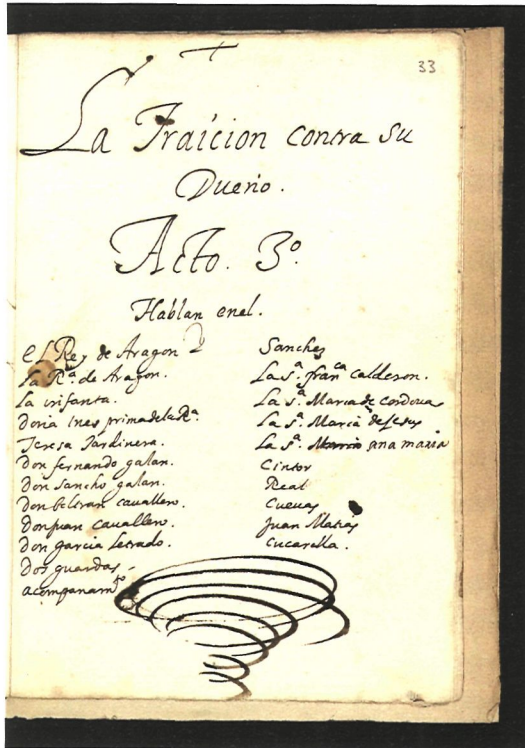 33
La Traicion contra su
Dueño.
Acto. 3º.
Hablan enel.
el Rey de Aragon
la Rª. de Aragon.
la infanta.
Doña Ines prima dela Rª.
Teresa Jardinera.
Don fernando galan.
Don sancho galan.
Don beltran cavallero.
Don juan cavallero.
Don garcia Letrado.
Dos guardas
acompanamᵗᵒ.
Sanches
La sª. franᶜᵃ calderon.
La sª. Maria de Cordova
La sª. Maria de Jesus
La sª. ana maria
Cintor
Real
Cuevas
Juan Matias
Cucarella.